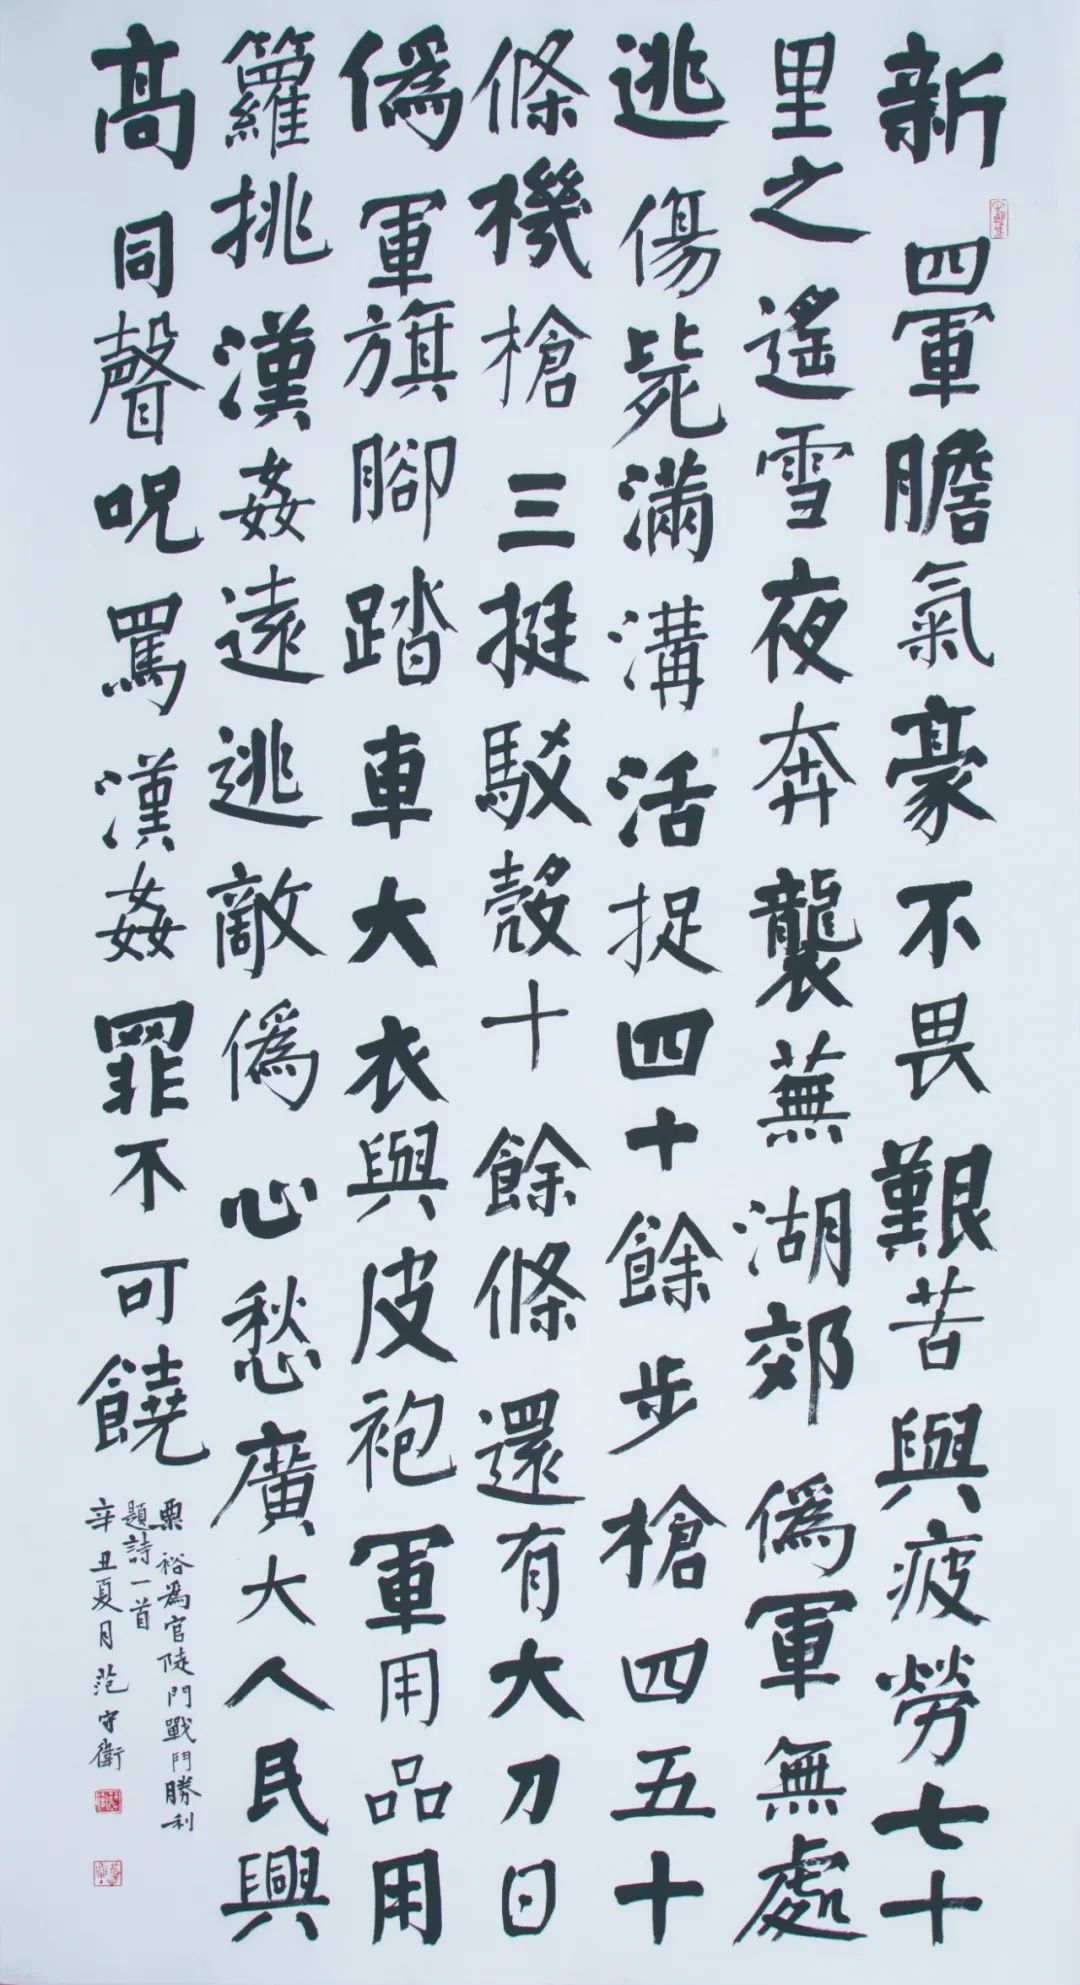 新四軍膽氣豪不畏艱苦與疲勞七十
里之遙雪夜奔襲蕪湖郊偽軍無處
逃傷斃滿溝活捉四十餘步槍四五十
條機槍三挺駁殼十餘條還有大刀日
偽軍旗腳踏車大衣與皮袍軍用品用
籮挑漢姦遠逃敵偽心愁廣大人民興
高同聲咒罵漢姦罪不可饒
粟裕為官陡門戰鬥勝利
題詩一首
辛丑夏月范守衛